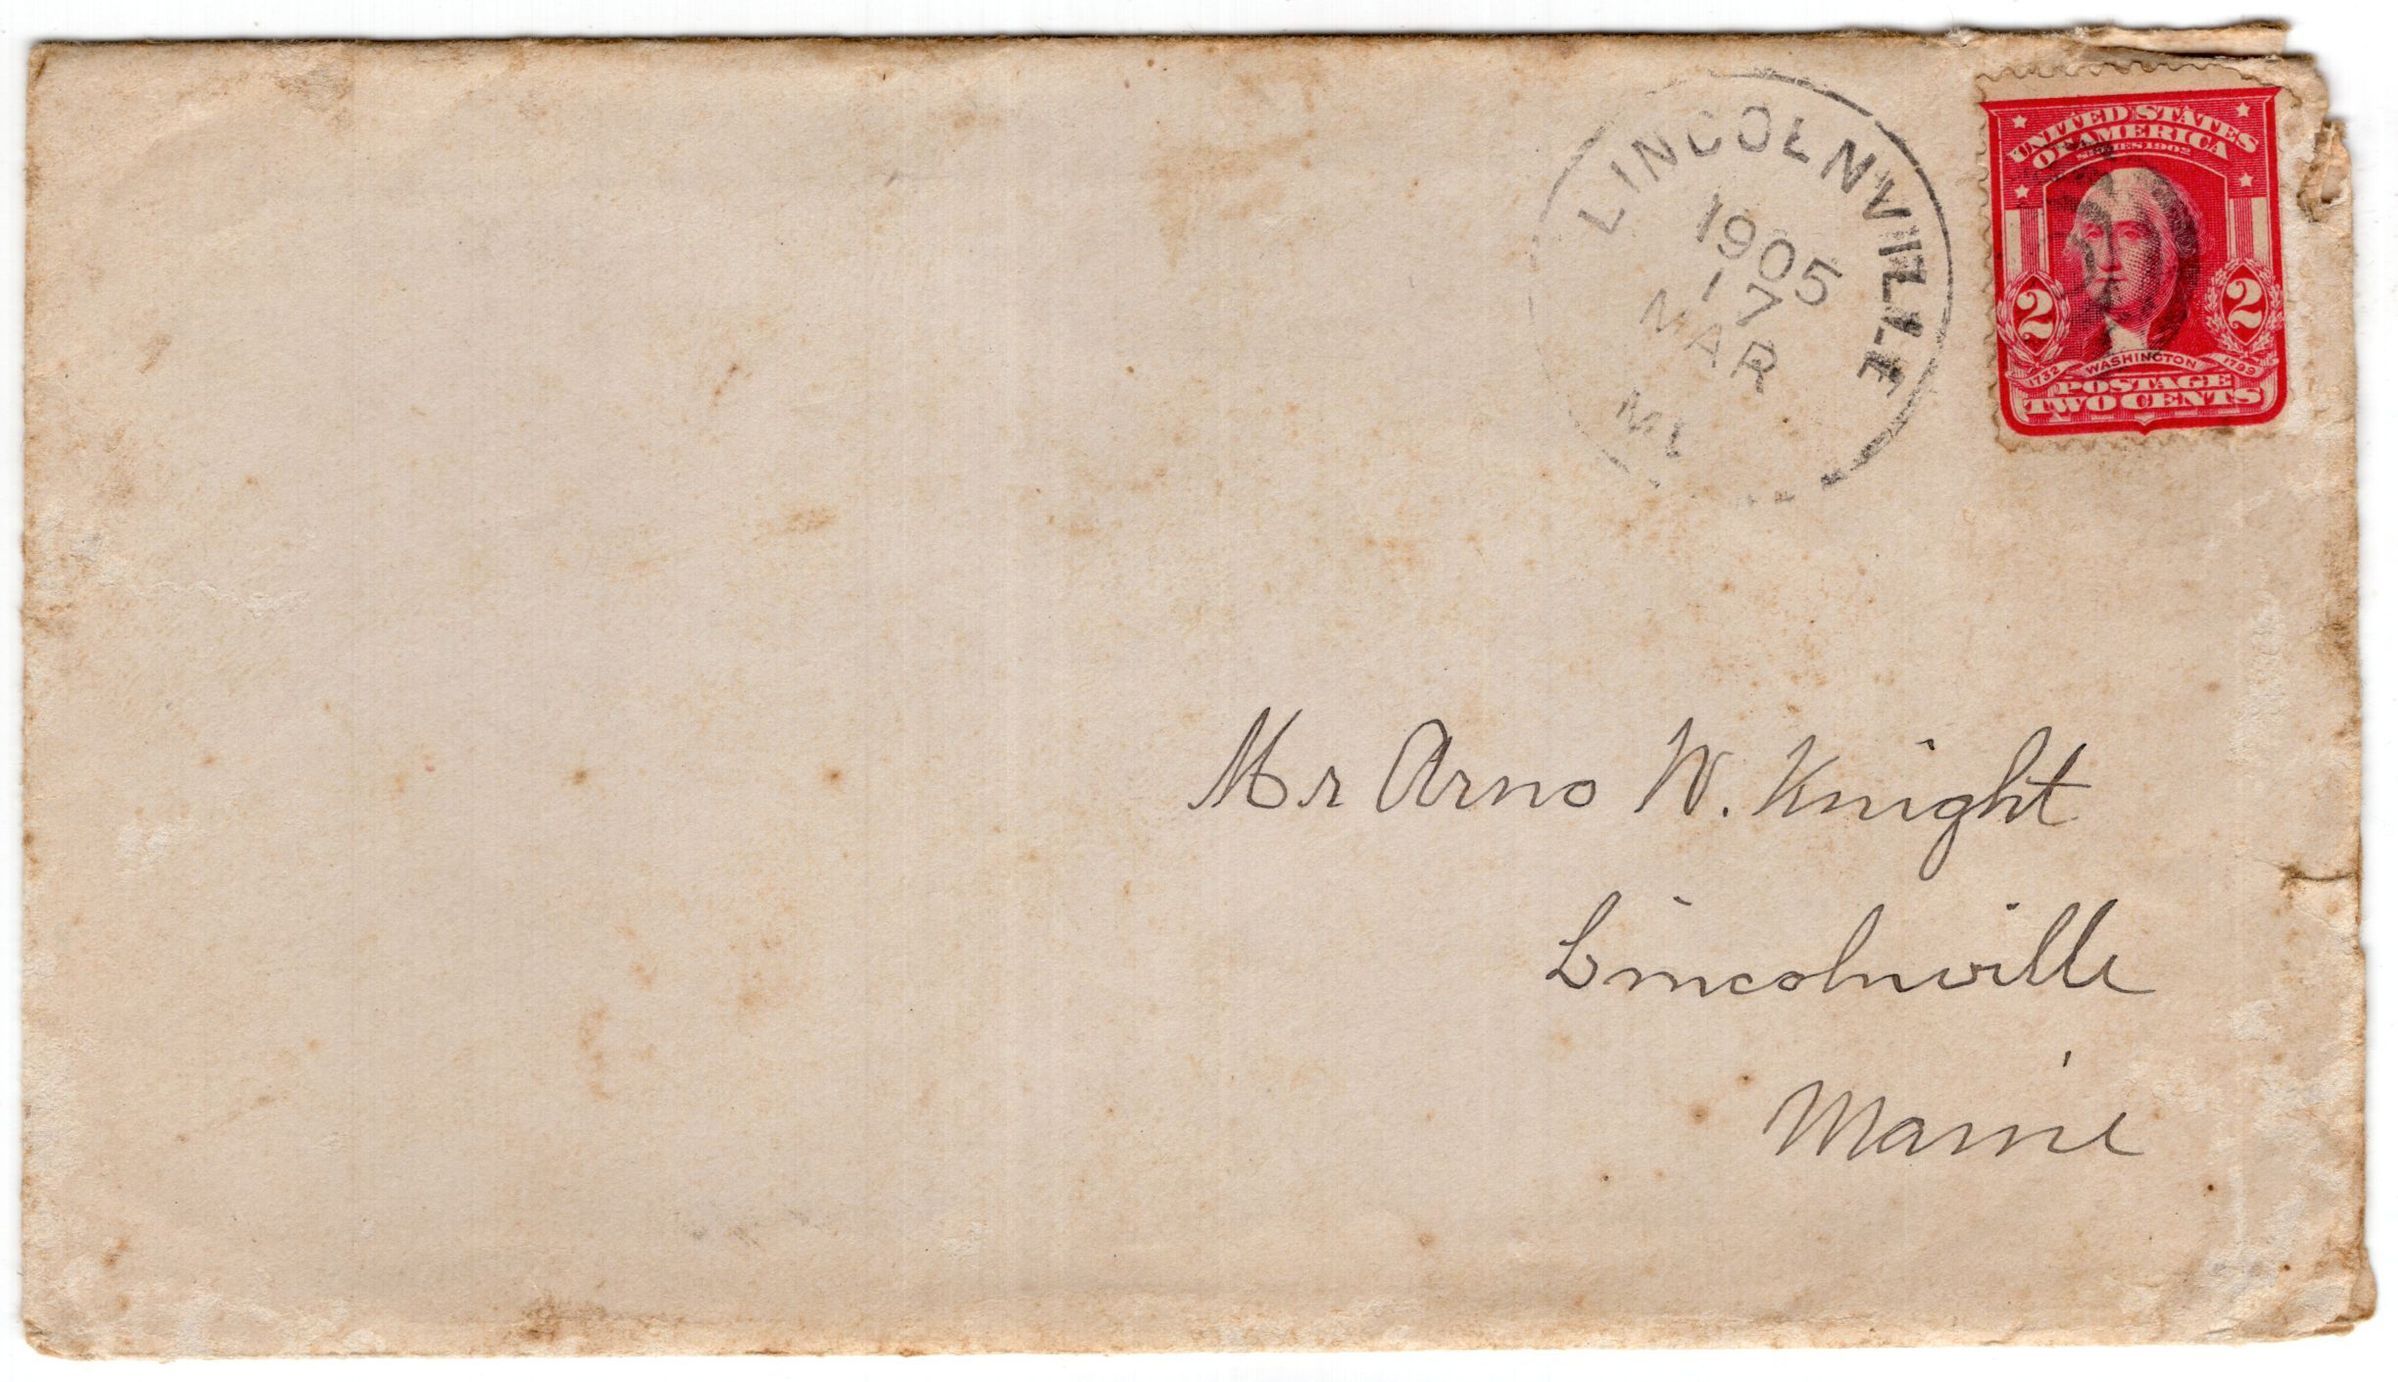 LINCOLNVILLE
1905
17
MAR
ME
UNITED STATES
OF AMERICA
SERIES 1902
2 2
1732 WASHINGTON 1799
POSTAGE
TWO CENTS
Mr Arno W. Knight
Lincolnville
Maine